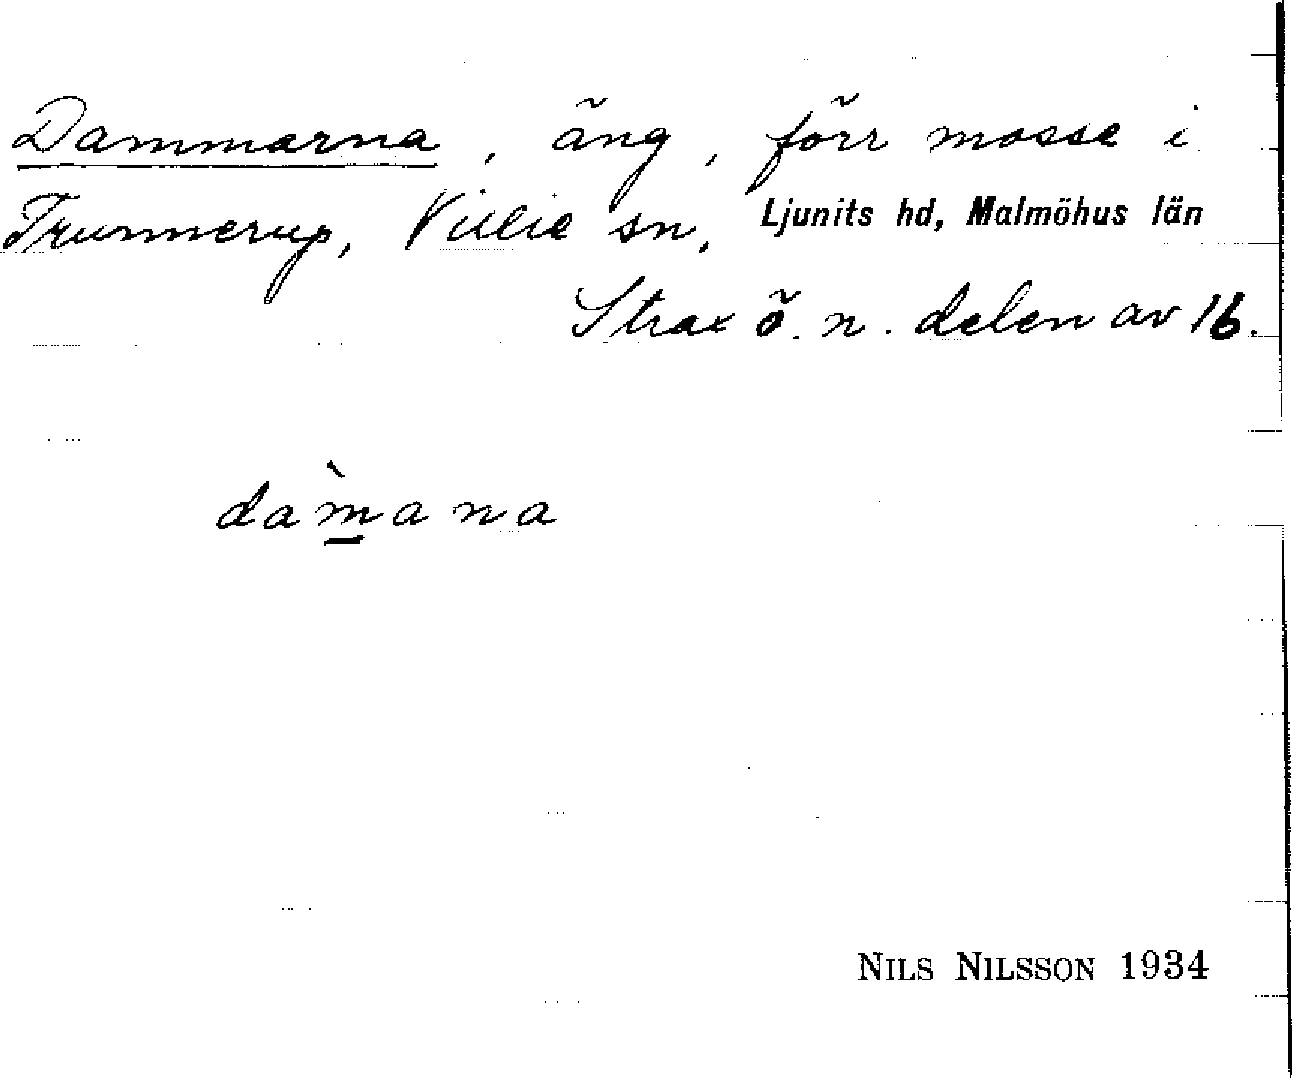 Dammarna, äng, förr mosse i
Trunnerup, Villie sn, Ljunits hd, Malmöhus län
Strax ö. n. delen av 16.
dam̲̀ana
NILS NILSSON 1934